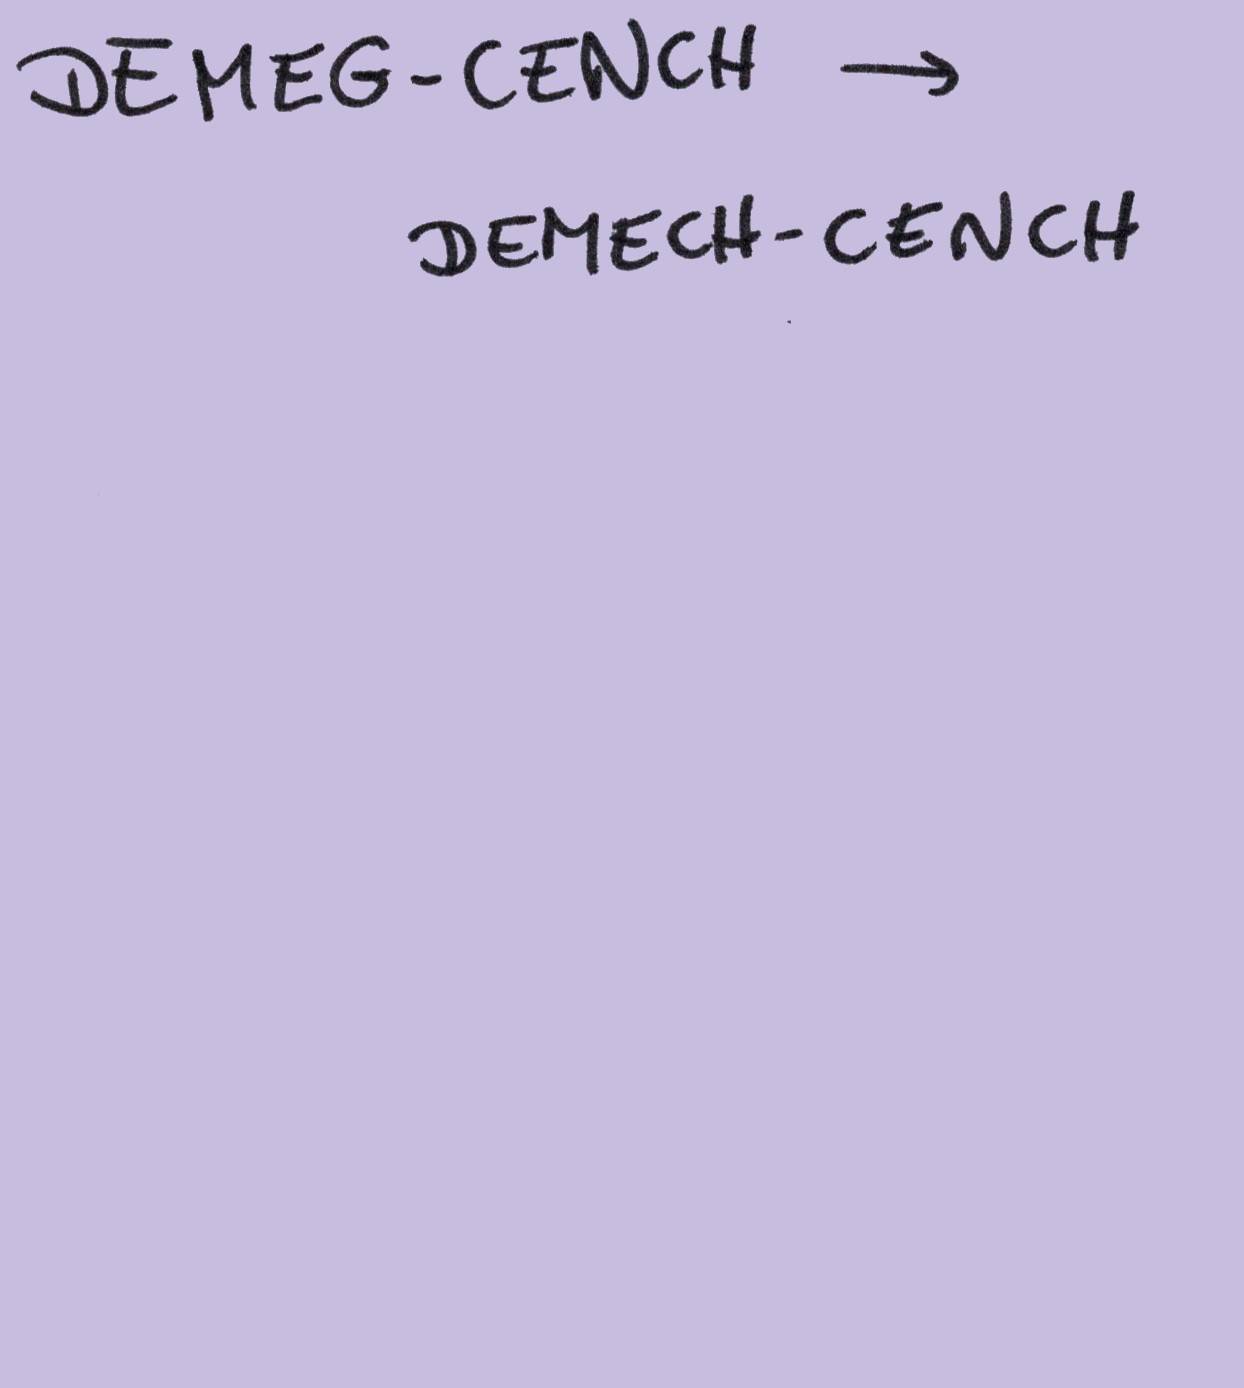 DEMEG-CENCH →
DEMECH-CENCH